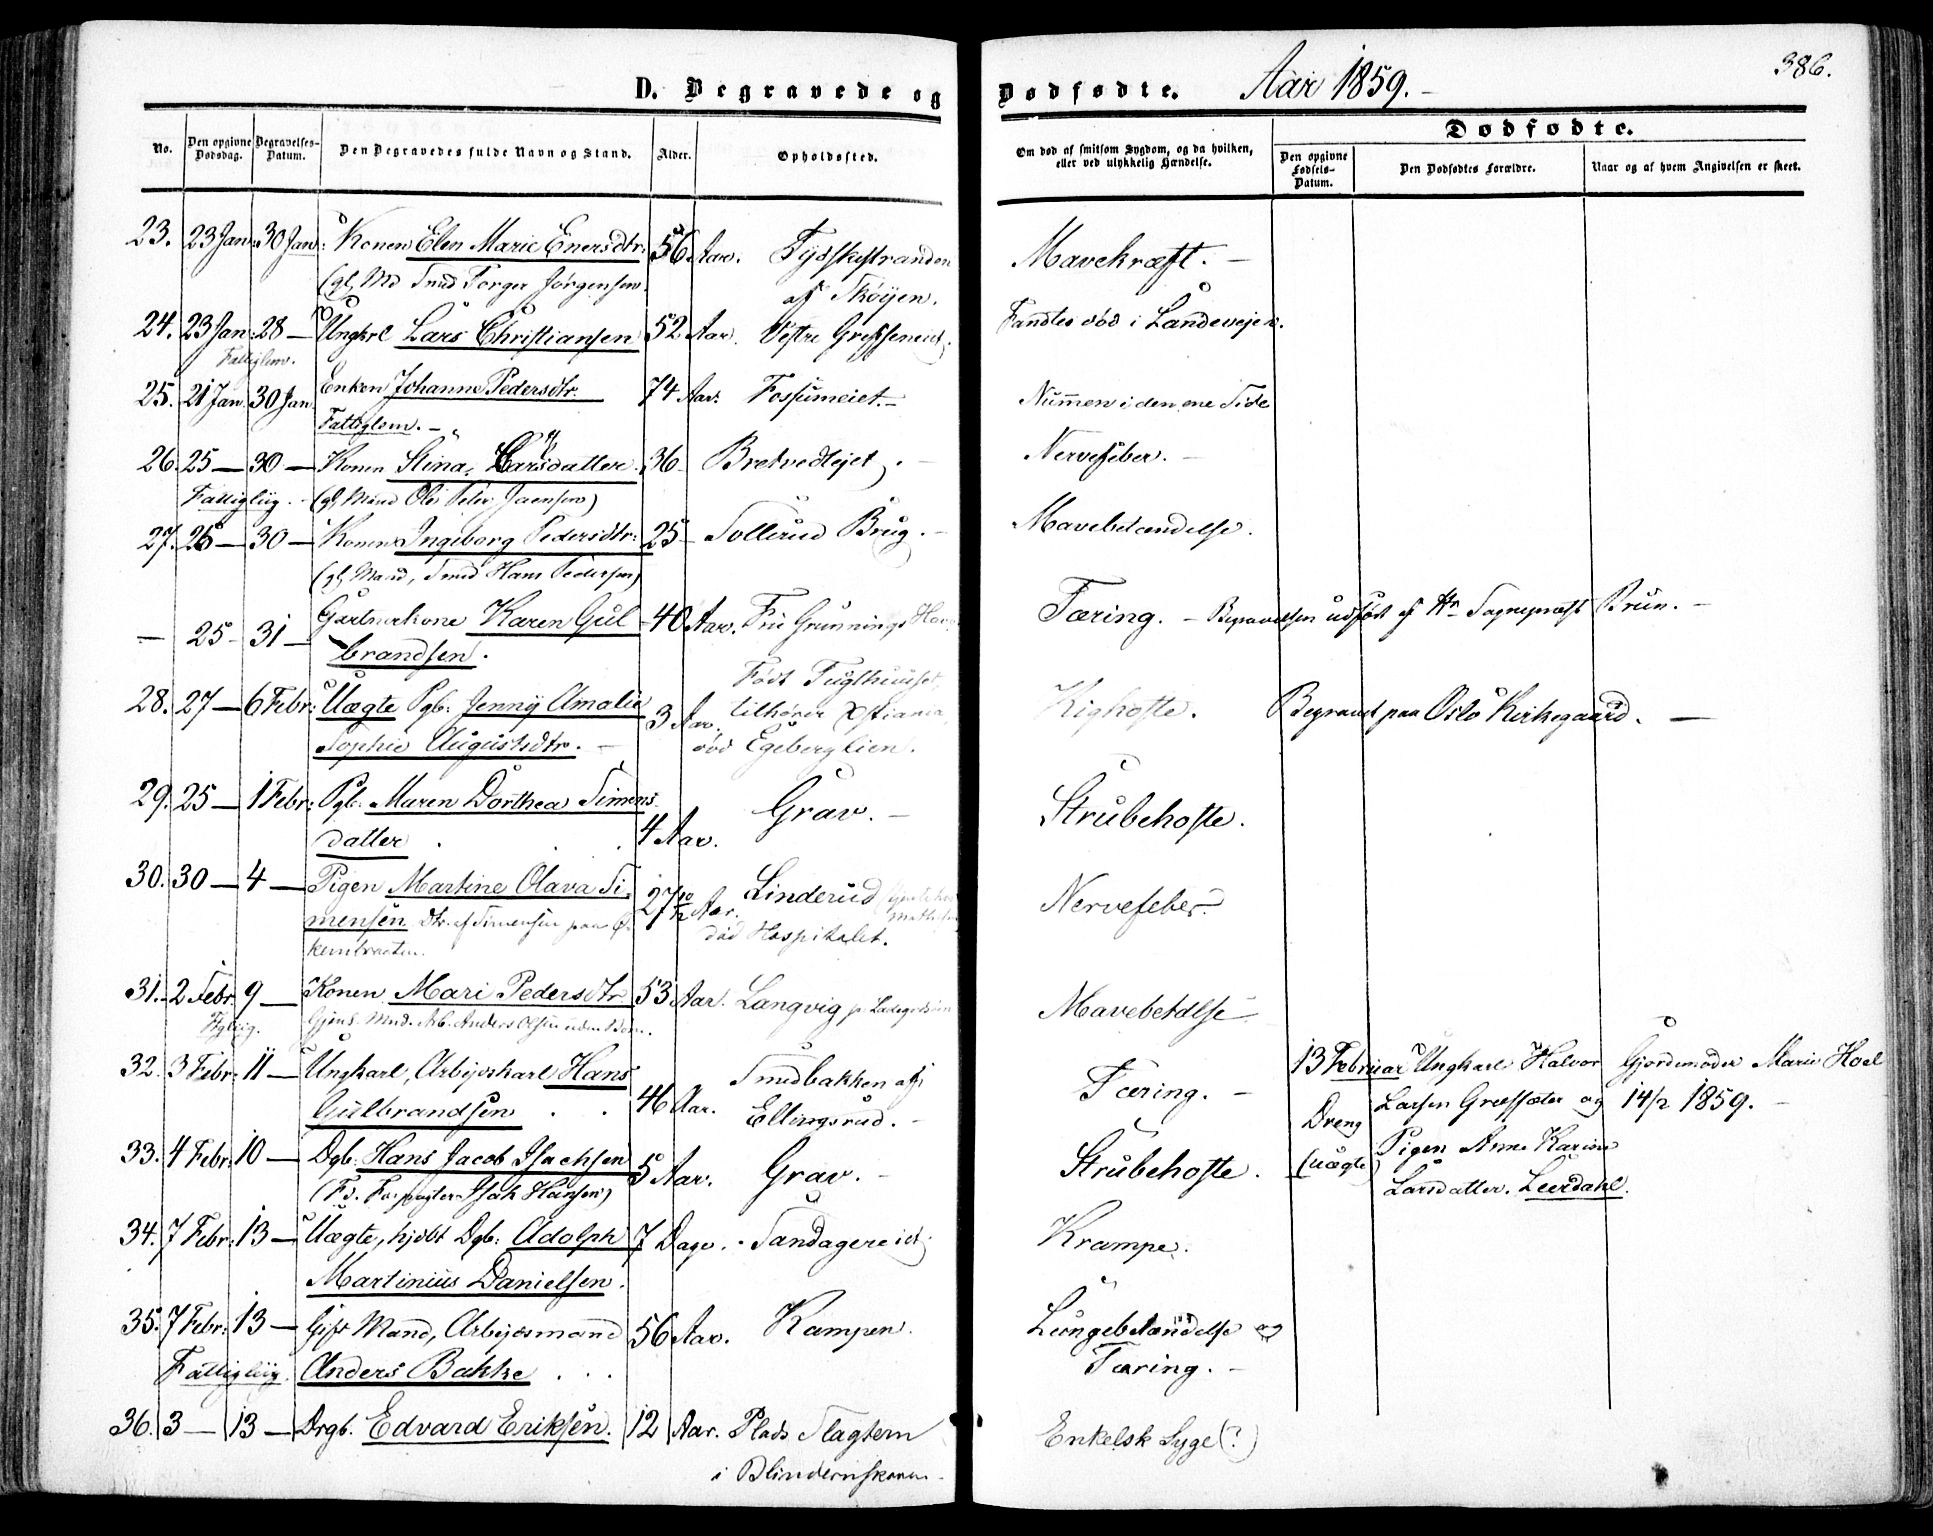 D. Begravede og Dødfødte. Aar 1859.
386.
No.
Den opgivne Dødsdag.
Begravelses-Datum.
Den Begravedes fulde Navn og Stand.
Alder.
Opholdssted.
Om død af smitsom Sygdom, og da hvilken, eller ved ulykkelig Hændelse.
Dødfødte.
Den opgivne Fødsels-Datum.
Den Dødfødtes Forældre.
Naar og af hvem Angivelsen er skeet.
23. 23 Jan. 30 Jan. Konen Elen Marie Enersdtr: 56 Aar. Tydskestranden Mavekræft. -
(gl. Md Smed Torger Jørgensen. af Skøyen.
24. 23 Jan: 28 - Ungkrl Lars Christiansen 52 Aar. Vestre Grefseneid. Fandtes død i Landeveien.
Fattiglem.
25. 21 Jan. 30 Jan Enken Johanne Pedersdtr. 74 Aar. Fossumeiet. - Nummen i den ene Side
Fattiglem. -
26. 25 - 30 - Konen Stina Larsdatter. 36 - Bretvedtejet. - Nervefeber. -
Fattigliig. - (gl. Mand Ole Peter Jaensen)
27. 26 - 30 - Konen Ingeborg Pedersdtr: 25 - Sollerud Brug. - Mavebetændelse.
(gl. Mand, Smed Hans Pedersen)
- 25 - 31 - Gartnerkone Karen Gul- 40 Aar. Frue Grunnings Have Tæring. - Begravelsen udført af Hr Sogneprest Brun. -
brandsen.
28. 27 - 6 Febr: Uægte Pgb: Jenny Amalie 3 Aar. Født Tugthuuset, Kighoste. Begravet paa Oslo Kirkegaard. -
Sophie Augustsdtr. - tilhører Xstiania,
død Egeberglien.
29. 25 - 1 Febr: Pgb. Maren Dorthea Simens- Grav. - Strubehoste.
datter 4 Aar.
30. 30 - 4 - Pigen Martine Olava Si- 27 10/12 Aar. Linderud Nervefeber.
mensen Dtr. af Simensen paa
død Hospitalet.
31. - 2 Febr. 9 - Konen Mari Pedersdtr 53 Aar. Langvig Mavebetdlse
32. 3 Febr: 11 - Ungkarl, Arbejdskarl Hans 46 Aar. Smedbakken af Tæring. -
Gulbrandsen Ellingsrud. -
13 Februar Ungkarl Halvor Gjordemoder Marie Hoel
Dreng Larsen Grefsæter og 14/2 1859. -
(uægte) Pigen Anne Karine
Larsdatter. Leerdahl.
33. 4 Febr: 10 - Dgb: Hans Jacob Isachsen 5 Aar. Grav. - Strubehoste.
(Fd. Forpagter Isak Hansen)
34. 7 Febr: 13 - Uægte, hjdbt Dgb: Adolph 7 Dage. Sandagereid. Krampe.
Martinius Danielsen.
35. 7 Febr: 13 - Gift Mand, Arbejdsmand 56 Aar. Kampen. Lungebetændelse og
Fattigliig. Anders Bakke Tæring. -
36. 3 - 13 - Drgb. Edvard Eriksen. 12 Aar. Plads Slagtern Enkelsk Syge (?)
i Blindernskoven.